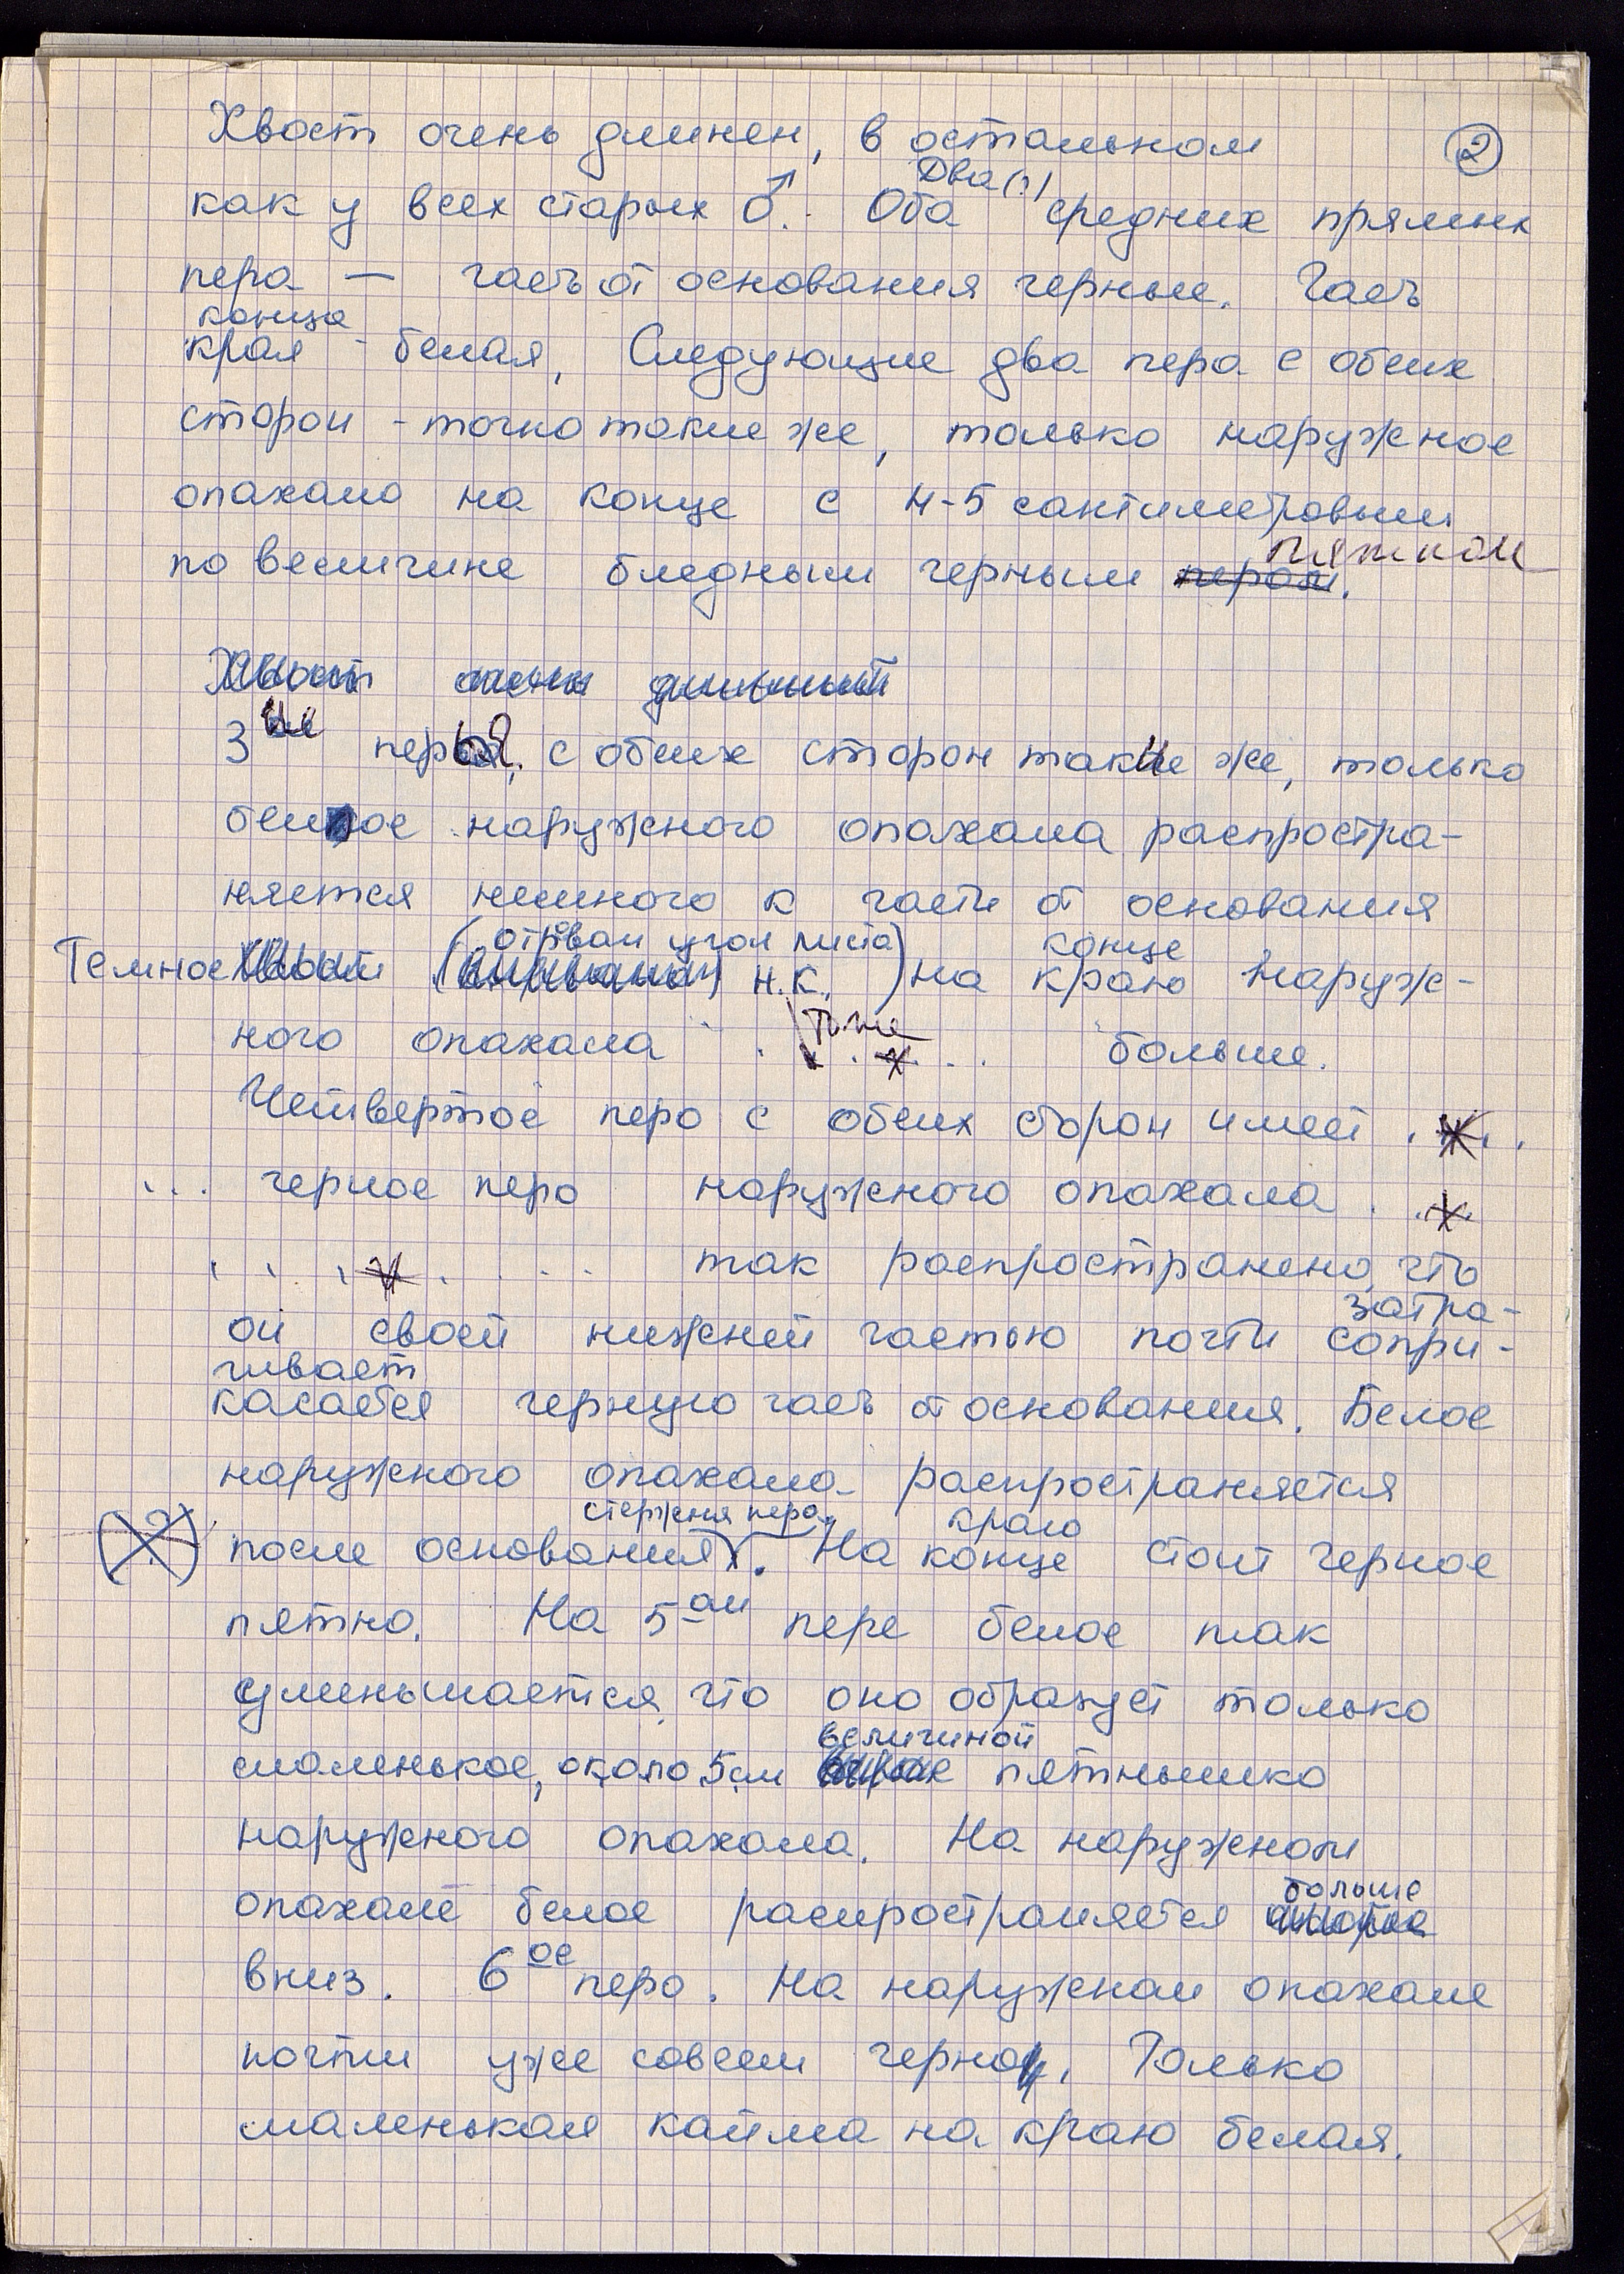 Хвост очень длинен, в остальном ②
Два(?)
как у всех старых ♂. Оба средних прямых
пера — часть от основания черные. Часть
конца
края - белая, Следующие два пера с обеих
сторон - точно такие же, только наружное
опахало на конце с 4-5 сантиметровым
пятном
по величине бледным черным пером.
Хвост очень длинный
3ие перья, с обеих сторон такие же, только
белое наружного опахала распростра-
няется немного к части от основания
(оторван угол листа) конце
Темное н.к.) на краю наруж-
тоже
ного опахала . . . . . больше.
Четвертое перо с обеих сторон имеет . . . .
... черное перо наружного опахала . . .
. . . . . . . . так распространено, что
затра-
ой своей нижней частью почти сопри-
гивает
касается черную часть от основания. Белое
наружного опахала распространяется
стержня пера краю
(?) после основания). На конце стоит черное
пятно. На 5ом пере белое так
уменьшается, что оно образует только
величиной
маленькое, около 5 см пятнышко
наружного опахала. На наружном
больше
опахале белое распространяется
вниз. 6ое перо. На наружном опахале
почти уже совсем черно. Только
маленькая кайма на краю белая.